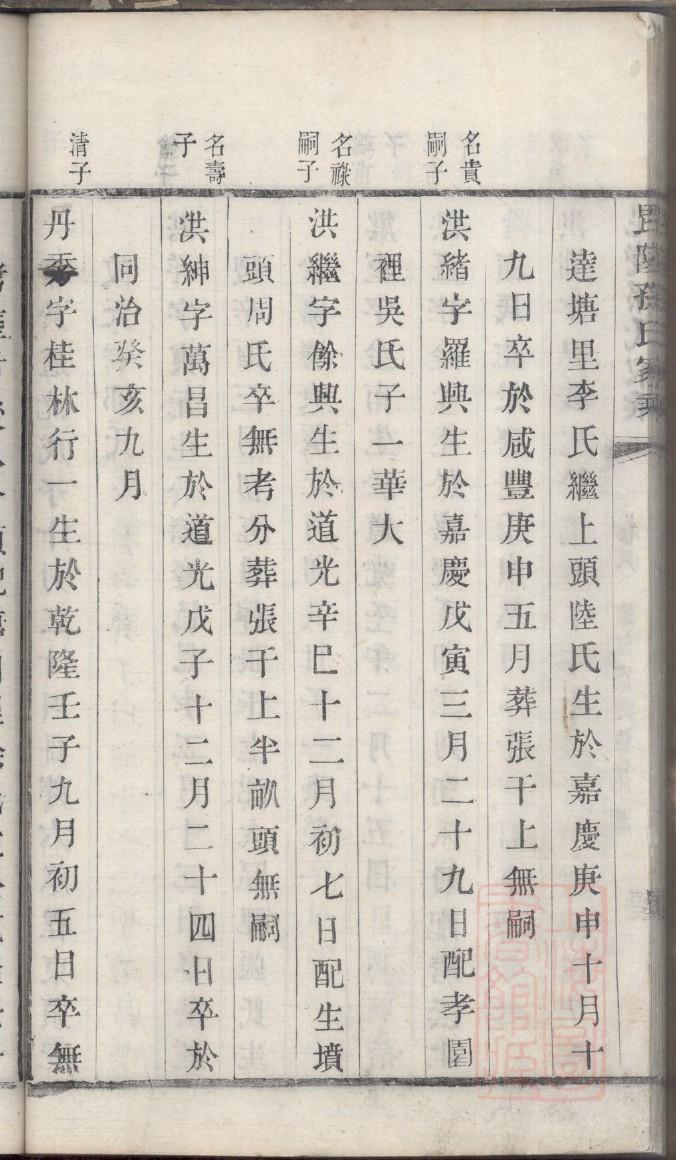 毘陵孫氏家乘
達塘里李氏繼上頭陸氏生於嘉慶庚申十月十
九日卒於咸豐庚申五月葬張干上無嗣
名貴
嗣子
洪緒字羅興生於嘉慶戊寅三月二十九日配孝園
裡吳氏子一華大
名祿
嗣子
洪繼字餘興生於道光辛巳十二月初七日配生墳
頭周氏卒無考分葬張干上半畝頭無嗣
名壽
子
洪紳字萬昌生於道光戊子十二月二十四日卒於
同治癸亥九月
清子
丹秀字桂林行一生於乾隆壬子九月初五日卒無
上海圖書館藏